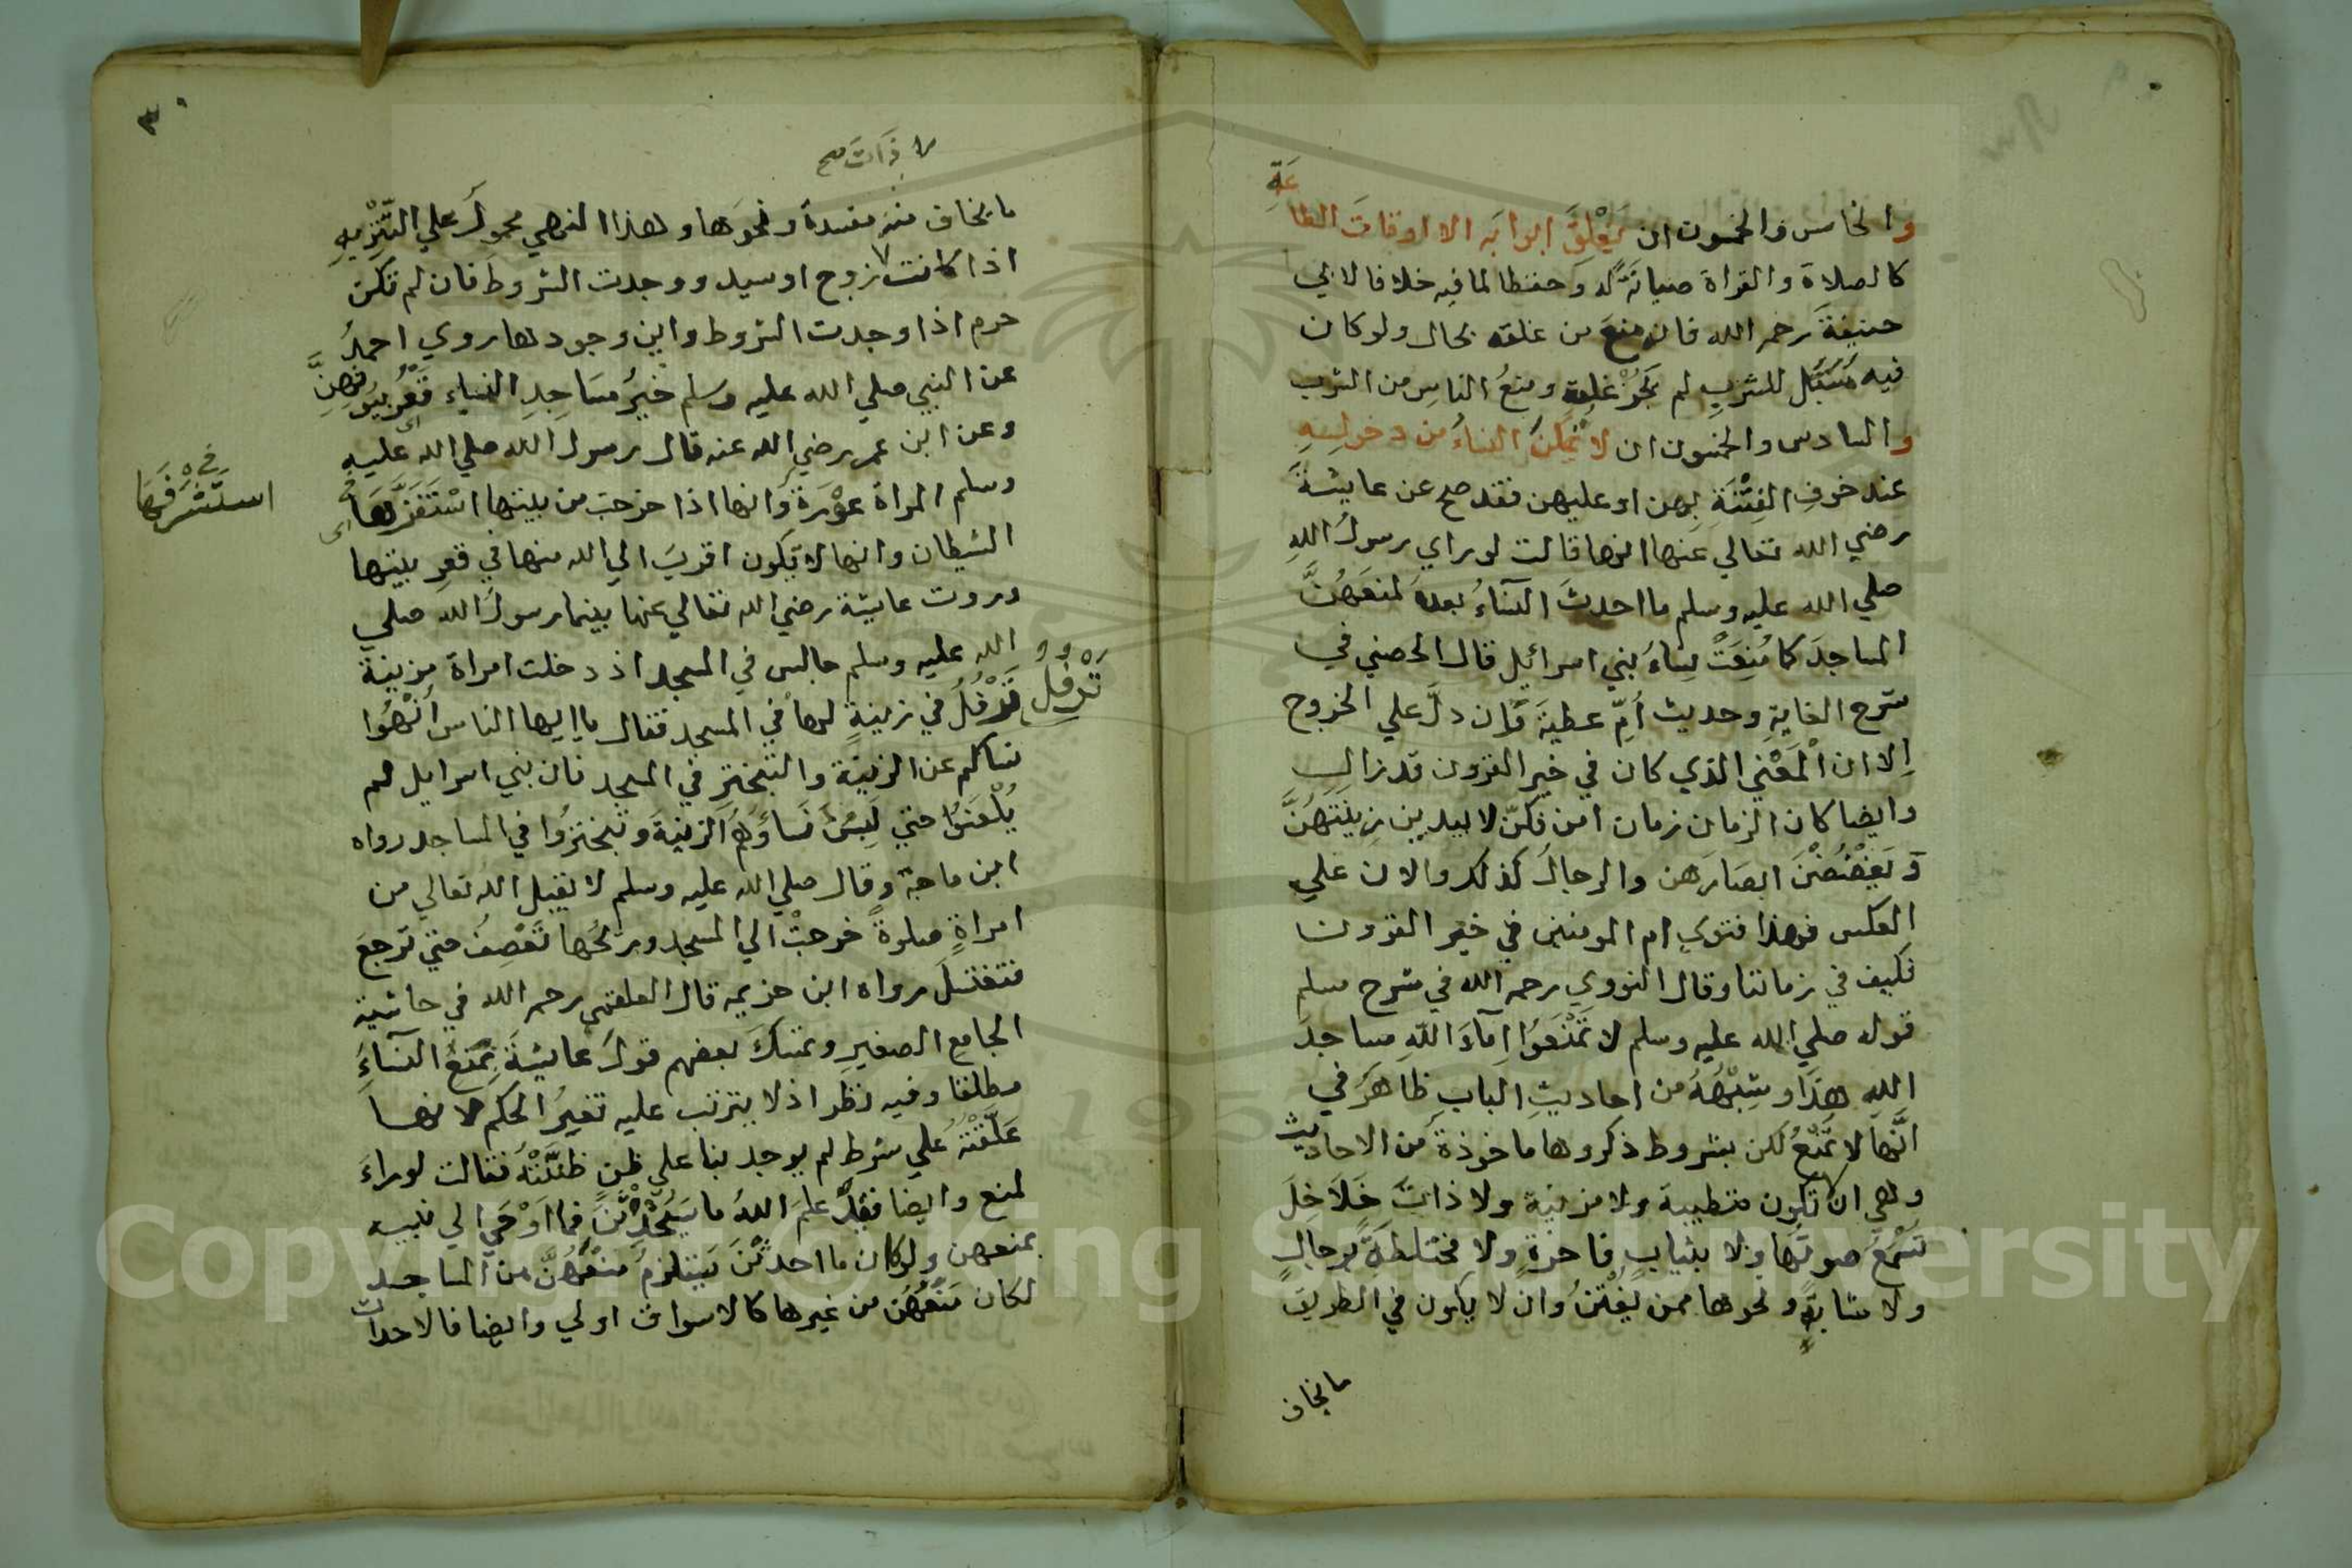 والخامس والخمسون ان يَغْلِقَ ابوابَه الا اوقاتَ الطاعَةِ
كالصلاة والقراة صيانَةً له وحفظا لما فيه خلافا لابي
حنيفةَ رحمه الله فانه منعَ من غلقه بحال ولو كان
فيه مُسَبَّل للشربِ لم يَجُزْ غلقه ومنعُ الناسِ من الشرب
والسادس والخمسون ان لا تُمَكَّنَ النساءُ من دخولِهِ
عند خوفِ الفِتْنَةِ بِهن او عليهن فقد صح عن عايشةَ
رضي الله تعالي عنها انها قالت لو راي رسولُ اللهِ
صلي الله عليه وسلم ما احدثَ النسَآءُ بعدَه لمنعَهُنَّ
المساجدَ كما مُنِعَتْ نِسَاءُ بني اسرائيل قال الحصني في
شرح الغايةِ وحديث أُمِّ عطيةَ وان دلَّ علي الخروج
اِلا ان الْمَعْني الذي كان في خير القرون قد زال
وايضا كان الزمان زمان امن فكنّ لا يبدين زِينَتَهُنَّ
وَيَغْضُضْنَ ابصَارَهن والرجالُ كذلك والان علي
العكس فهذا فتوي ام المومنين في خير القرون
فكيف في زماننا وقال النووي رحمه الله في شرح مسلم
قوله صلي الله عليه وسلم لا تَمْنَعُوا اِمَآءَ اللّهِ مساجدَ
اللهِ هَذَا وشِبْهُهُ من احاديثِ البابِ ظاهرٌ في
انَّها لا تُمْنَعُ لكن بشروط ذكروها ماخوذة من الاحاديث
وهي ان لا تكون متطيبة ولا مزينة ولا ذاتَ خَلَاخِلَ
تُسْمَعُ صوتُها ولا بثيابٍ فاخرةٍ ولا مختلطةً برجالٍ
ولا شابةٍ ونحوها ممن يُفْتَنُ وان لا يكون في الطريق
ما يخاف
٣
لا ذَاتَ صح
ما يخاف منه مفسدة ونحوَها وهذا النهي محمولٌ علي التَّنْزِيهِ
اذا كانت زوج او سيد ووجدت الشروط فان لم تكن
حرم اذا وجدت الشروط واين وجودها روي احمدُ
عن النبي صلي الله عليه وسلم خيرُ مسَاجِدِ النساء قَعْرُ بيُوتِهِنَّ
وعن ابن عمر رضي الله عنه قال رسول الله صلي الله عليه
وسلم المراة عوْرَةٌ وانها اذا خرجت من بيتها اسْتَفَزَّهَا
استَشْرَفَهَا
الشيطان وانها لا تكون اقربَ الي الله منها في قعرِ بيتها
وروت عايشة رضي الله تعالي عنها بينما رسولُ الله صلي
الله عليه وسلم جالس في المسجد اذ دخلت امراة مزينة
تَرْفُلُ في زينةٍ لها في المسجد فقال يا ايها الناس اُنْهُوا
تَرْفُلُ
نساكم عن الزينة والتبختر في المسجد فان بني اسرايل لم
يُلْعَنُوا حتي لَبِسَ نسَاؤُهُم الزينةَ وتبخترُوا في المساجد رواه
ابن ماجة وقال صلي الله عليه وسلم لا يقبل الله تعالي من
امراةٍ صلوةً خرجتْ الي المسجد وريحُها تَعْصِفُ حتي ترجعَ
فتغتسلَ رواه ابن خزيمه قال العلقمي رحمه الله في حاشية
الجامع الصغيرِ وتمسَّكَ بعضهم قولَ عايشةَ بِمَنْعِ النسَآءِ
مطلقا وفيه نظر اذ لا يترتب عليه تغييرُ الحكم لانها
عَلَّقَتْهُ علي شرط لم يوجد بنا علي ظنٍ ظنَّتْهُ فقالت لو راءَ
لمنع وايضا فقد علمَ اللهُ ما سَيُحْدِثْنَ فما اَوْحَي الي نبيه
بمنعهن ولو كان ما احدثْنَ يَستلزمُ منْعَهُنَّ من المساجد
لكان مَنْعُهُن من غيرها كالاسواق اولي وايضا فالاحداث